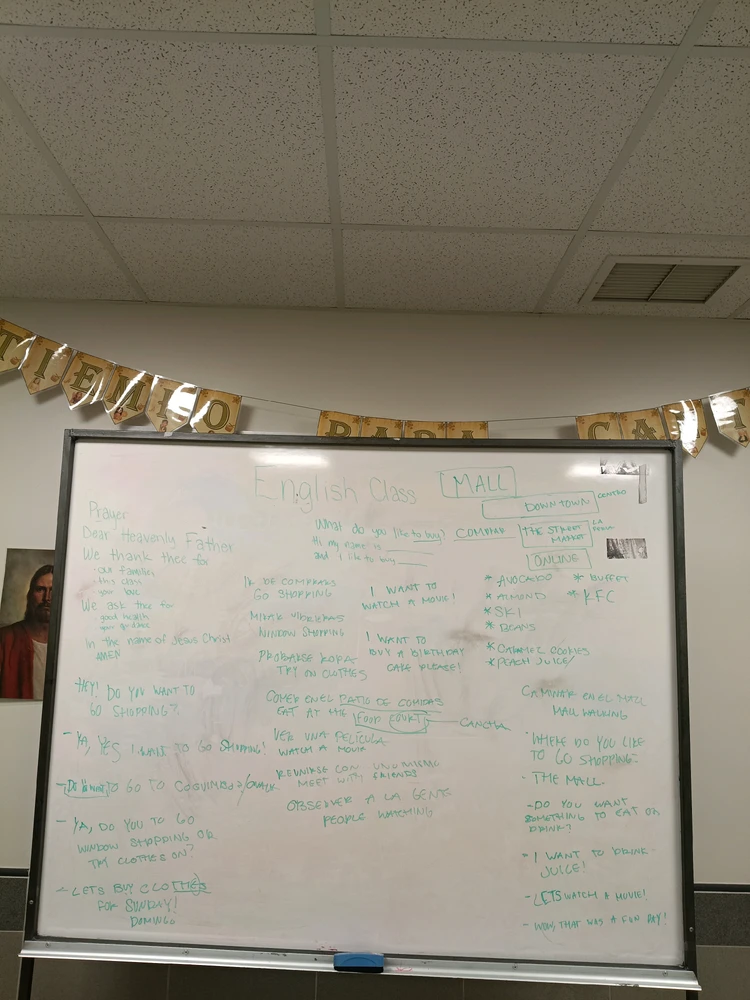 TIEMPO PARA CA
English Class
MALL
DOWNTOWN
CENTRO
What do you like to buy?
COMPRAR
THE STREET
MARKET
LA
Hi, my name is
and I like to buy
ONLINE
Prayer
Dear Heavenly Father
We thank thee for
- our families
- this class
your love
We ask thee for
good health
In the name of Jesus Christ
AMEN
HEY! DO YOU WANT TO
GO SHOPPING?
- YA, YES I WANT TO GO SHOPPING!
TO GO TO
- YA, DO YOU TO GO
WINDOW SHOPPING OR
TRY CLOTHES ON?
- LETS BUY CLOTHES
FOR SUNDAY!
DOMINGO
IR DE COMPRAS
GO SHOPPING
MIRAR VIDRIERAS
WINDOW SHOPPING
PROBARSE ROPA
TRY ON CLOTHES
COMER EN EL PATIO DE COMIDAS
EAT AT THE FOOD COURT
VER UNA PELÍCULA
WATCH A MOVIE
REUNIRSE CON
MEET WITH FRIENDS
OBSERVER A LA GENTE
PEOPLE WATCHING
I WANT TO
WATCH A MOVIE!
I WANT TO
BUY A BIRTHDAY
CAKE PLEASE!
* AVOCADO
* ALMOND
* SKI
* BEANS
* CARAMEL COOKIES
* PEACH JUICE
* BUFFET
* KFC
CAMINAR EN EL MALL
MALL WALKING
- WHERE DO YOU LIKE
TO GO SHOPPING?
- THE MALL
- DO YOU WANT
SOMETHING TO EAT OR
DRINK?
- I WANT TO DRINK
JUICE!
- LETS WATCH A MOVIE!
- WOW, THAT WAS A FUN DAY!